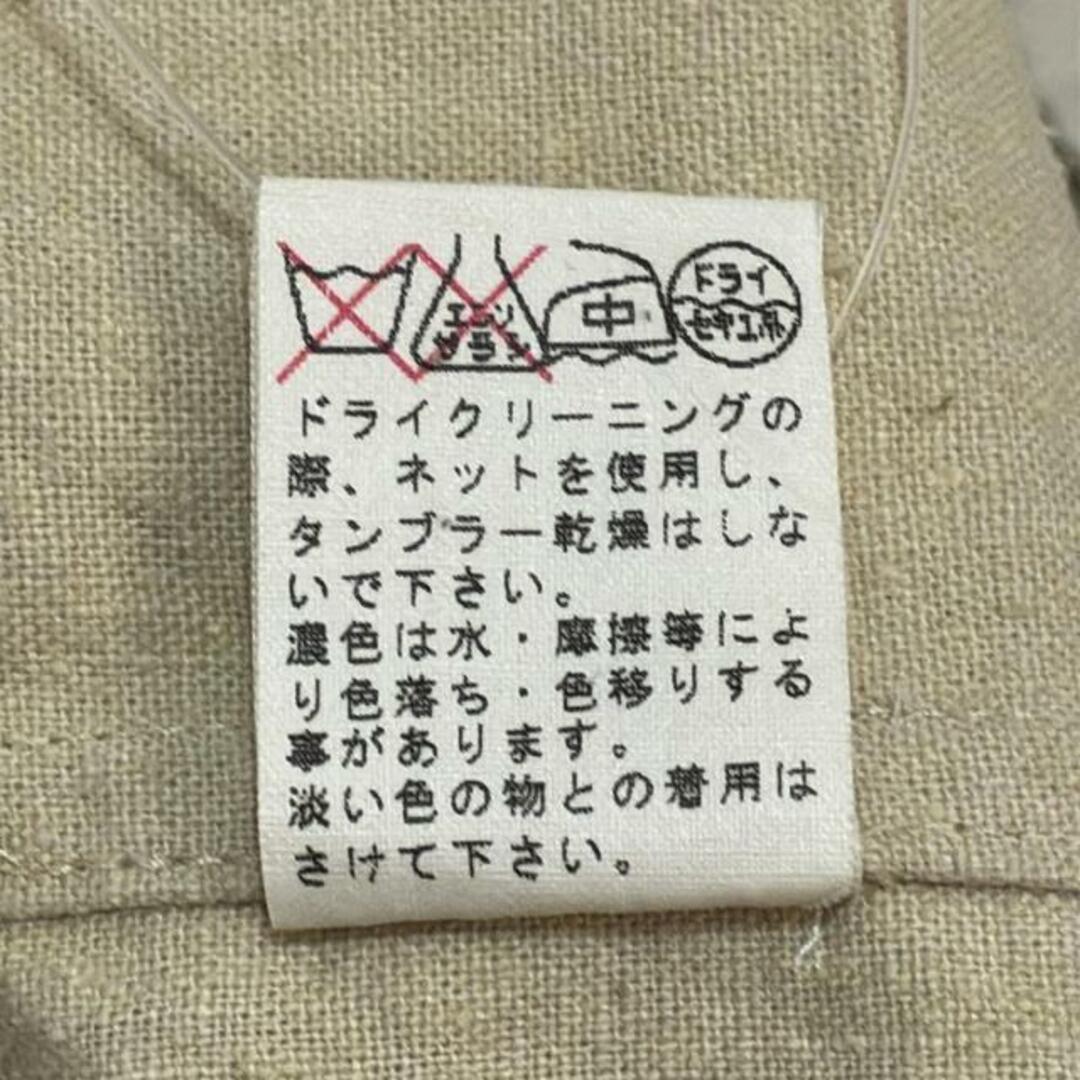 エンソ
サラシ
中
ドライ
セキユ系
ドライクリーニングの
際、ネットを使用し、
タンブラー乾燥はしな
いで下さい。
濃色は水・摩擦等によ
り色落ち・色移りする
事があります。
淡い色の物との着用は
さけて下さい。